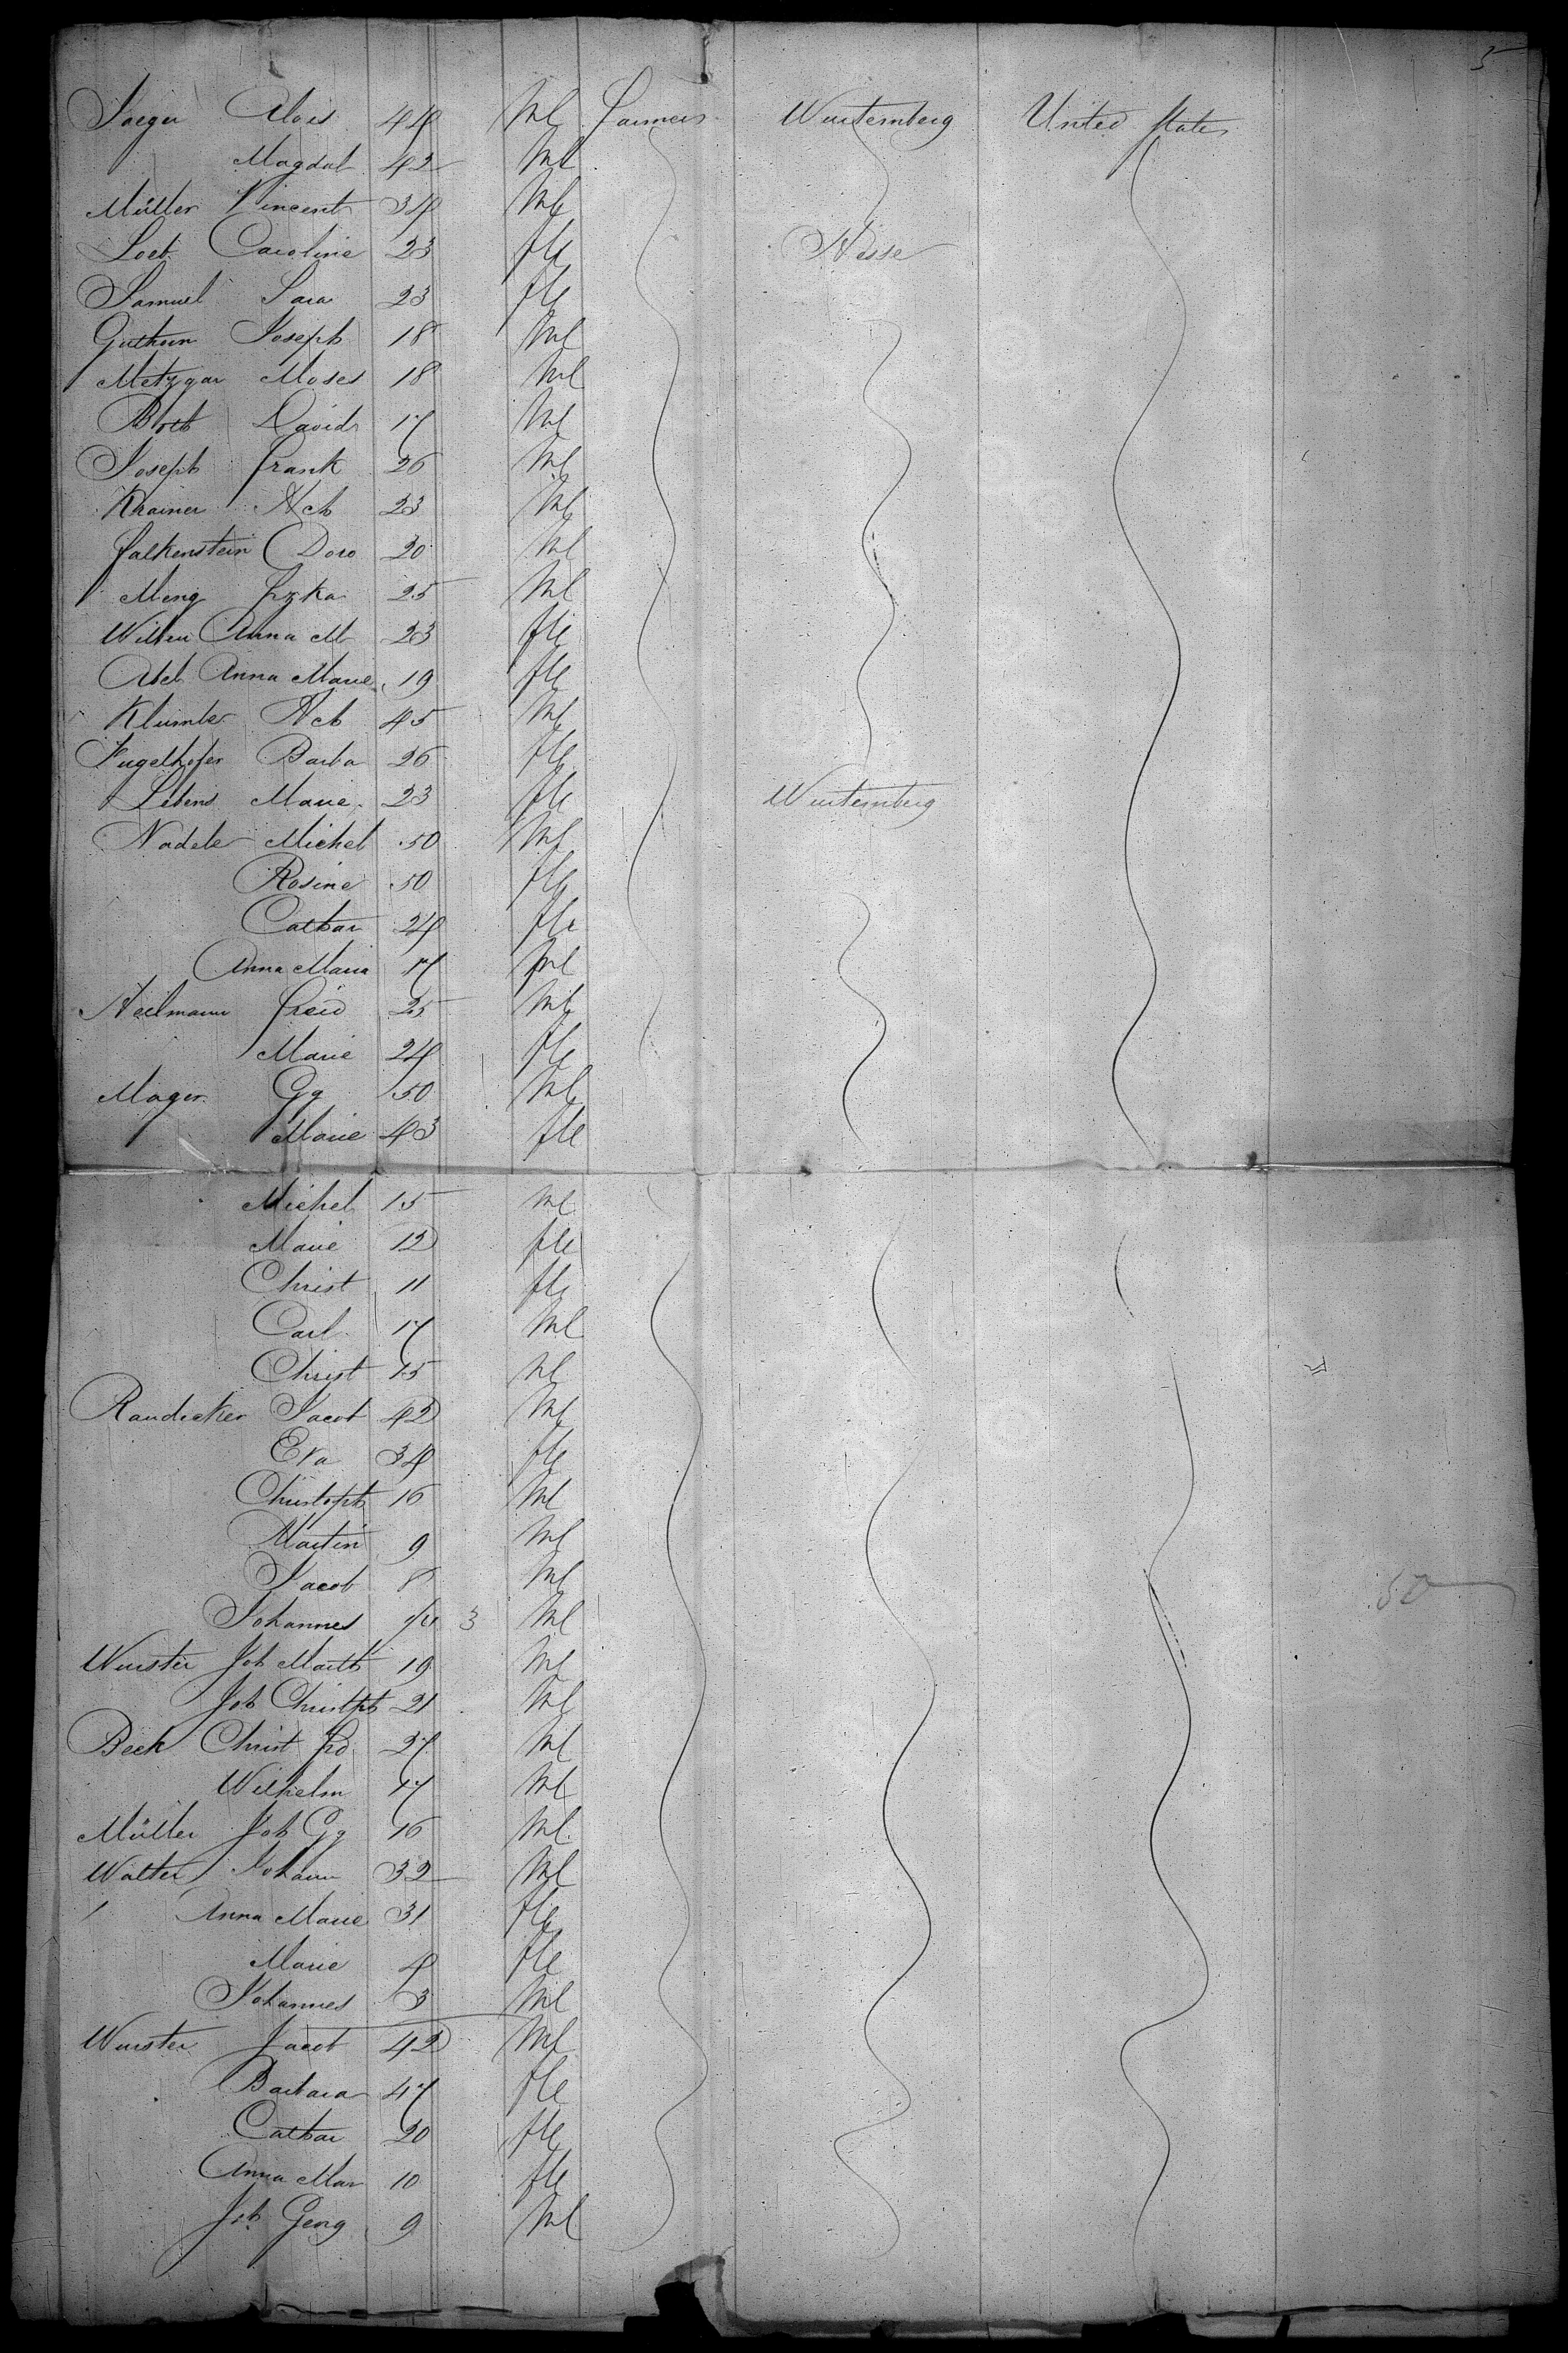 5
Jaeger Alois 44 Ml farmers Wurtemberg United States
Magdal 42 Ml
Müller Vincent 34 Ml
Loeb Caroline 23 fle Hesse
Samuel Sara 23 fle
Joseph 18 Ml
Metzgar Moses 18 Ml
David 17 Ml
Joseph frank 26 Ml
Krainer Hch 23 Ml
falkenstein Doro 20 Ml
Meng fzka 25 Ml
Anna M 23 fle
Abel Anna Marie 19 fle
Klumb Hch 45 Ml
Barba 26 fle
Lebens Marie 23 fle Wurtemberg
Nadele Michel 50 Ml
Rosine 50 fle
Cathar 24 fle
Anna Maria 17 Ml
Heilmann fried 25 Ml
Marie 24 fle
Mager Gg 50 Ml
Marie 43 fle
Michel 15 Ml
Marie 12 fle
Christ 11 fle
Carl 17 Ml
Christ 15 Ml
Randecker Jacob 42 Ml
Eva 34 fle
Christoph 16 Ml
Martin 9 Ml
Jacob 8 Ml
50
Johannes 3 Ml
Wurster Joh Marth 19 Ml
Joh Christph 21 Ml
Beck Christ fd 27 Ml
Wilhelm 17 Ml
Müller Joh Gg 16 Ml
Walter Johann 32 Ml
Anna Marie 31 fle
Marie 4 fle
Johannes 3 Ml
Wurster Jacob 42 Ml
Barbara 47 fle
Cathar 20 fle
Anna Mar 10 fle
Joh Georg 9 Ml